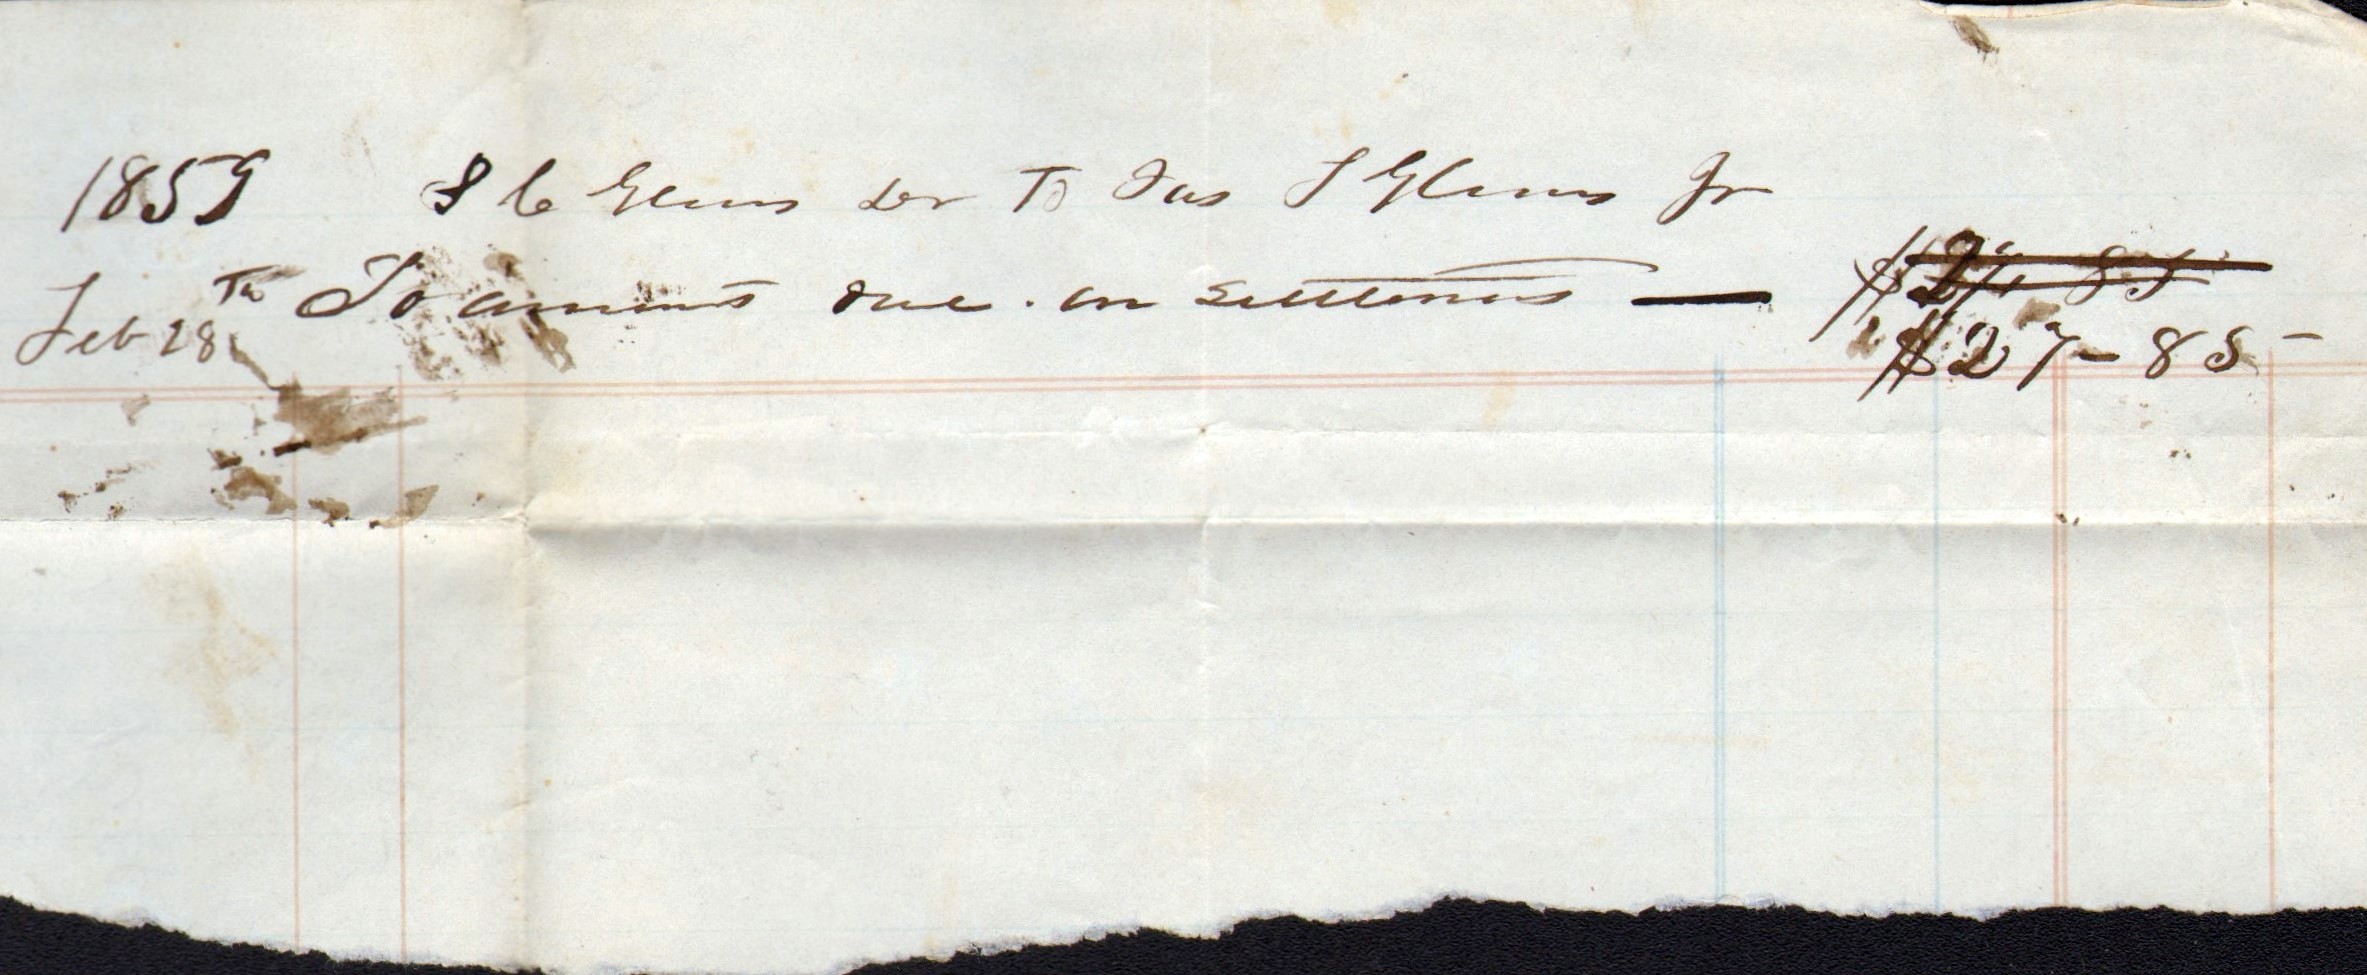 1859 S C Glenn Der To Jas S Glenn Jr
Feb 28 Th To amount due on Settlement — $27 85
$27 - 85 -